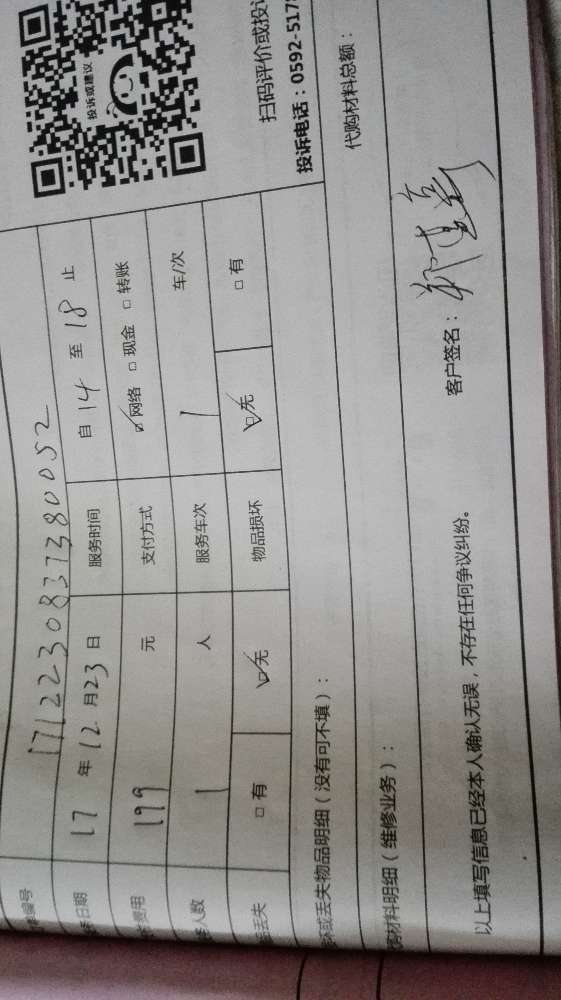 编号 1712230837380052
日期 17 年 12 月 23 日 服务时间 自 14 至 18 止
费用 199 元 支付方式 ☑网络 □现金 □转账
人数 1 人 服务车次 1 车/次
丢失 □有 ☑无 物品损坏 ☑无 □有
投诉或建议
扫码评价或投
投诉电话：0592-517
坏或丢失物品明细（没有可不填）：
代购材料总额：
材料明细（维修业务）：
以上填写信息已经本人确认无误，不存在任何争议纠纷。
客户签名：